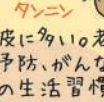 タンニン
皮に多い。老
予防、がんな
の生活習慣